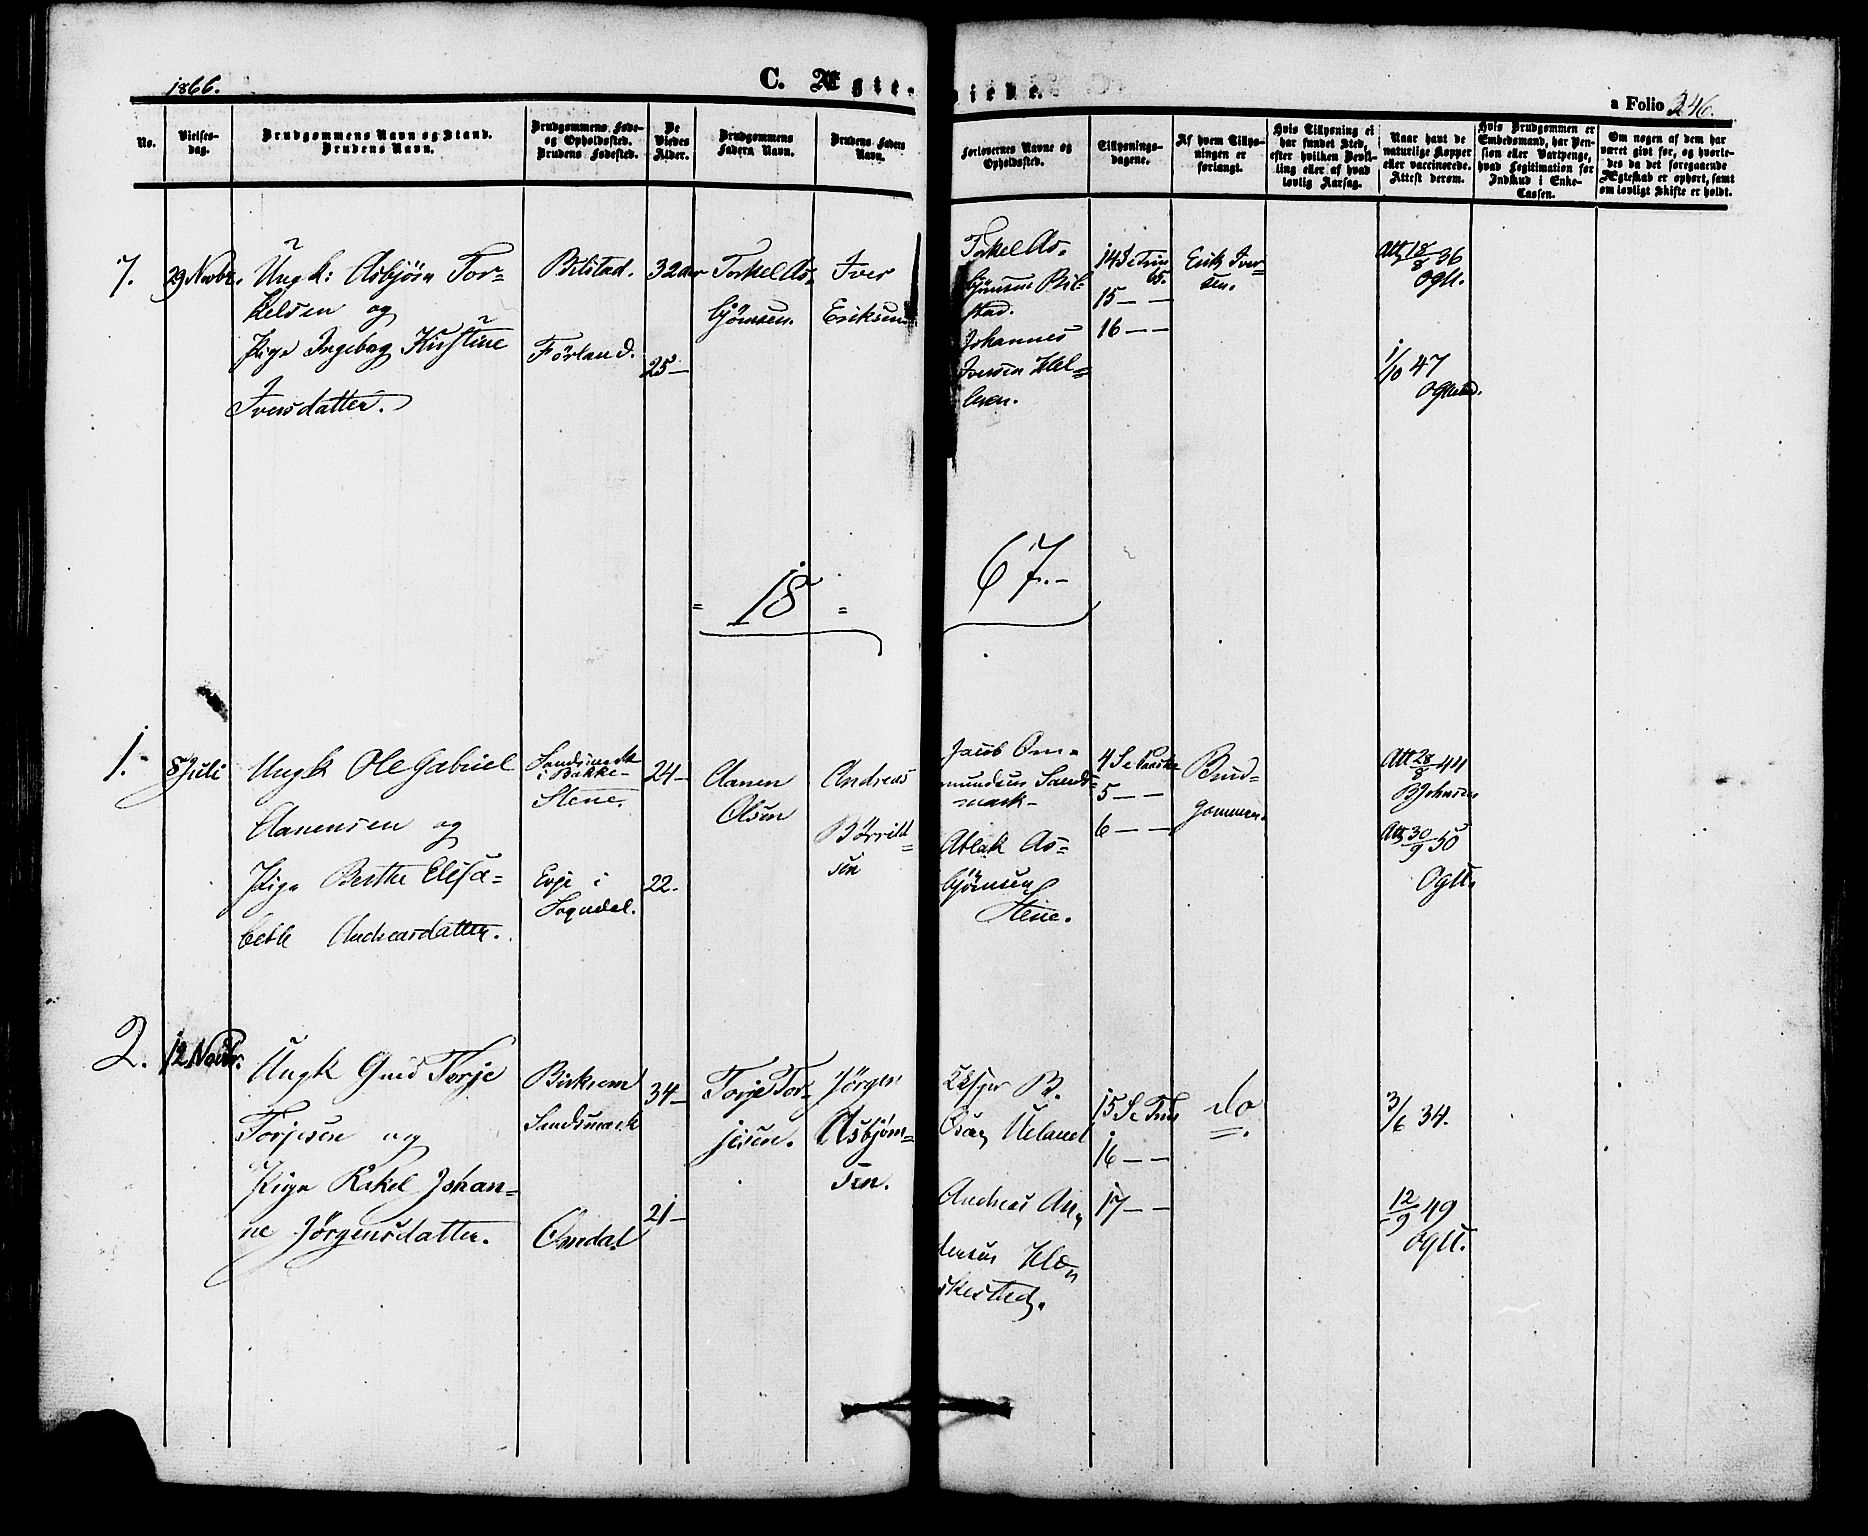 1866.
C. Ægte-
vielse.
a Folio 246.
No.
Vielses-
dag.
Brudgommens Navn og Stand.
Brudens Navn.
Brudgommens Føde-
og Opholdssted.
Brudens Fødested.
De
Viedes
Alder.
Brudgommens
Faders Navn.
Brudens Faders
Navn.
Forlovernes Navne og
Opholdssted.
Tillysnings-
dagene.
Af hvem Tillys-
ningen er
forlangt.
Hvis Tillysning ei
har fundet Sted,
efter hvilken Bevil-
ling eller af hvad
lovlig Aarsag.
Naar havt de
naturlige Kopper
eller vaccinerede.
Attest derom.
Hvis Brudgommen er
Embedsmand, har Pen-
sion eller Vartpenge,
hvad Legitimation for
Indskud i Enke-
Cassen.
Om nogen af dem har
været givt før, og hvorle-
des da det foregaaende
Ægteskab er ophørt, samt
om lovligt Skifte er holdt.
7.
29 Novbr.
Ungk: Asbjörn Tor-
kelsen og
Pige Ingebog Kirstine
Iversdatter.
Bilstad.
Förland.
32 aar
25-
Torkel As-
bjömsen.
Iver
Eriksen
Torkel As-
bjömsen Bil-
stad.
Johannes
Iversen Hel-
leren.
14 S e Trin
65.
15 - -
16 - -
Erik Iver-
sen.
Att 18/8 36
Ogll.
1/10 47
= 18 =
67.-
1.
8 Juli
Ungk Ole Gabriel
Aanensen og
Pige Berthe Elisa-
beth Andreasdatter.
Sandsmark
i Bakke-
Stene.
Evje i
Sogndal.
24-
22.
Aanen
Olsen
Andreas
Börrild-
sen
Jacob Om-
mundsen Sands-
mark-
Aslak As-
bjömsen
Stene.
4 S e Paaske
5 - -
6 - -
Brud-
gommen.
Att 28/8 44
Att 30/9 50
Ogll.
2.
12 Novbr.
Ungk Gud Terje
Torjesen og
Pige Rakel Johan-
ne Jörgensdatter.
Birkrem
Sandsmark
Omdal
34-
21-
Torje Tor-
jesen.
Jörgen
Asbjöm-
sen.
B.
Ueland
Andreas An-
dersen Hle-
skestad.
15 S e Trin
16 - -
17 - -
do
3/6 34.
12/9 49
Ogll.